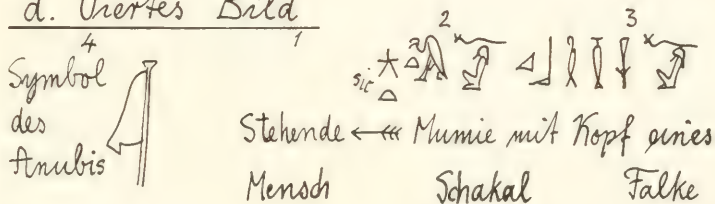 d. Viertes Bild
4 1 2 3
Symbol
des
Anubis
sic
Stehende Mumie mit Kopf eines
Mensch Schakal Falke